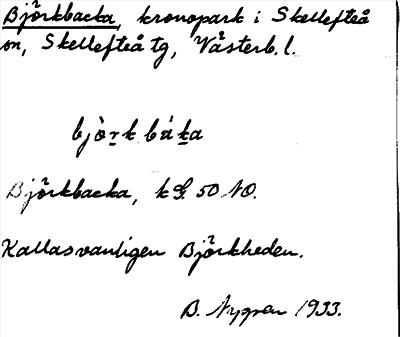 Björkbacka, kronopark i Skellefteå
sn, Skellefteå tg, Västerb. l.
bjò̱ṟk bá̱ḵa
Björkbacka, kG. 50 NO.
Kallas vanligen Björkheden.
B. Nygren 1933.